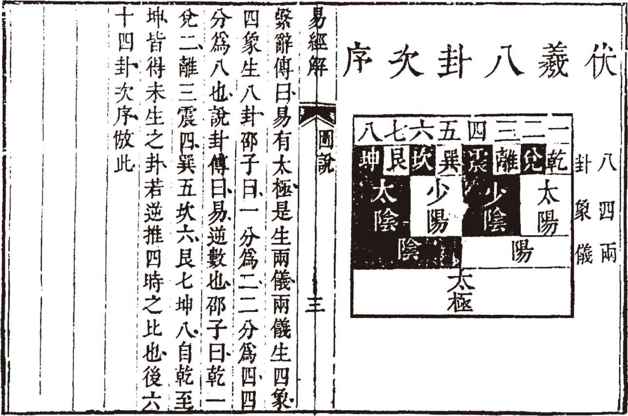 伏羲八卦次序
一二三四五六七八
乾兌離震巽坎艮坤
八卦
太陽少陰少陽太陰
四象
陽陰
兩儀
太極
易經解
圖說
三
繫辭傳曰易有太極是生兩儀兩儀生四象
四象生八卦邵子曰一分爲二二分爲四四
分爲八也說卦傳曰易逆數也邵子曰乾一
兌二離三震四巽五坎六艮七坤八自乾至
坤皆得未生之卦若逆推四時之比也後六
十四卦次序倣此